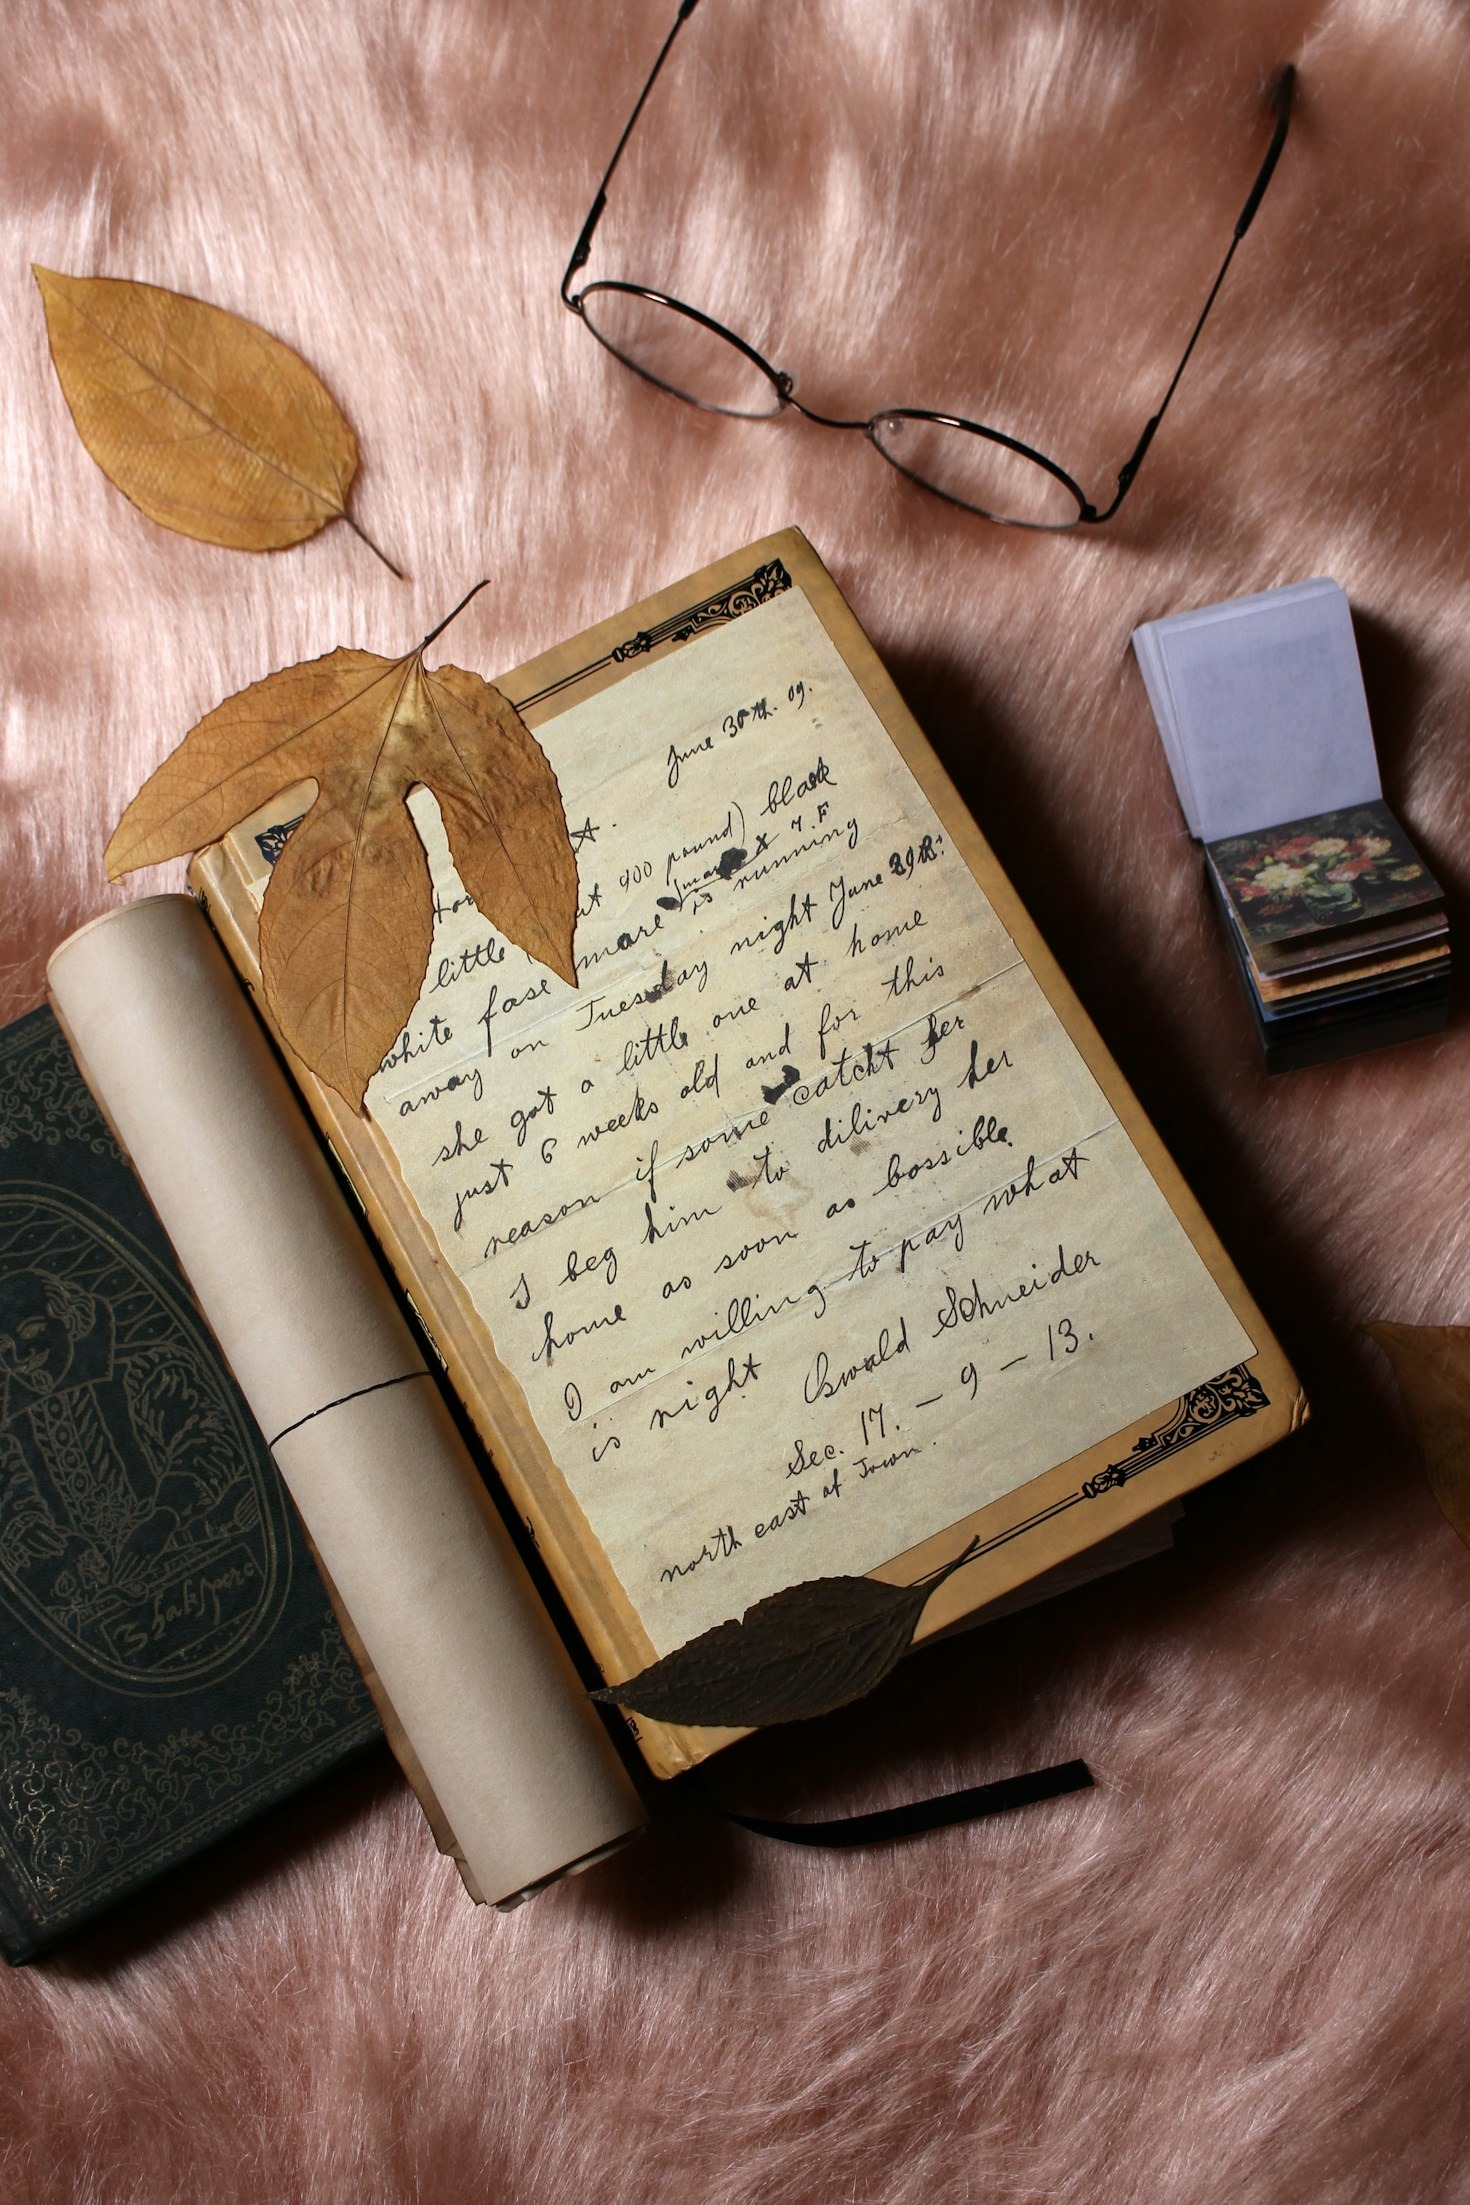 June 30th. 09.
900 pound) black
little
white fase mare is running
away on Tuesday night June 29th.
she got a little one at home
just 6 weeks old and for this
reason if some catcht her
I beg him to dilivery her
home as soon as bossible.
I am willing to pay what
is right Oswald Schneider
Sec. 17. — 9 — 13.
north east of Town.